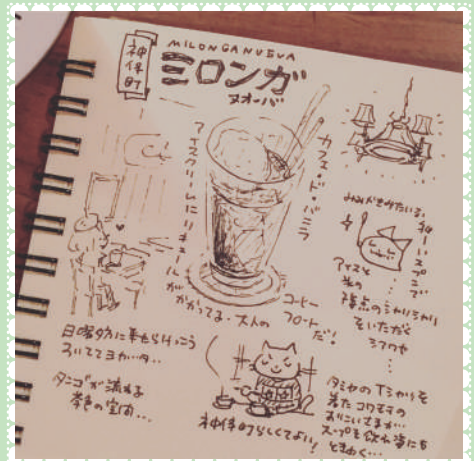 神保町
MILONGA NUEVA
ミロンガ
ヌオーバ
カフェ・ド・バニラ
アイスクリームにリキュールが
かかってる、大人の
コーヒー
フロートだ!
長ーいスプーンで
アイスと
氷の
接点のシャリシャリ
をいただく
シアワセ
…
日曜夕方に来たらけっこう
空いててヨカッタ…
タンゴが流れる
茶色の空間…
神保町らしくてよい!
タミヤのTシャツを
着たコワモテの
おにいさまが…
スープを飲む姿にも
ときめく…